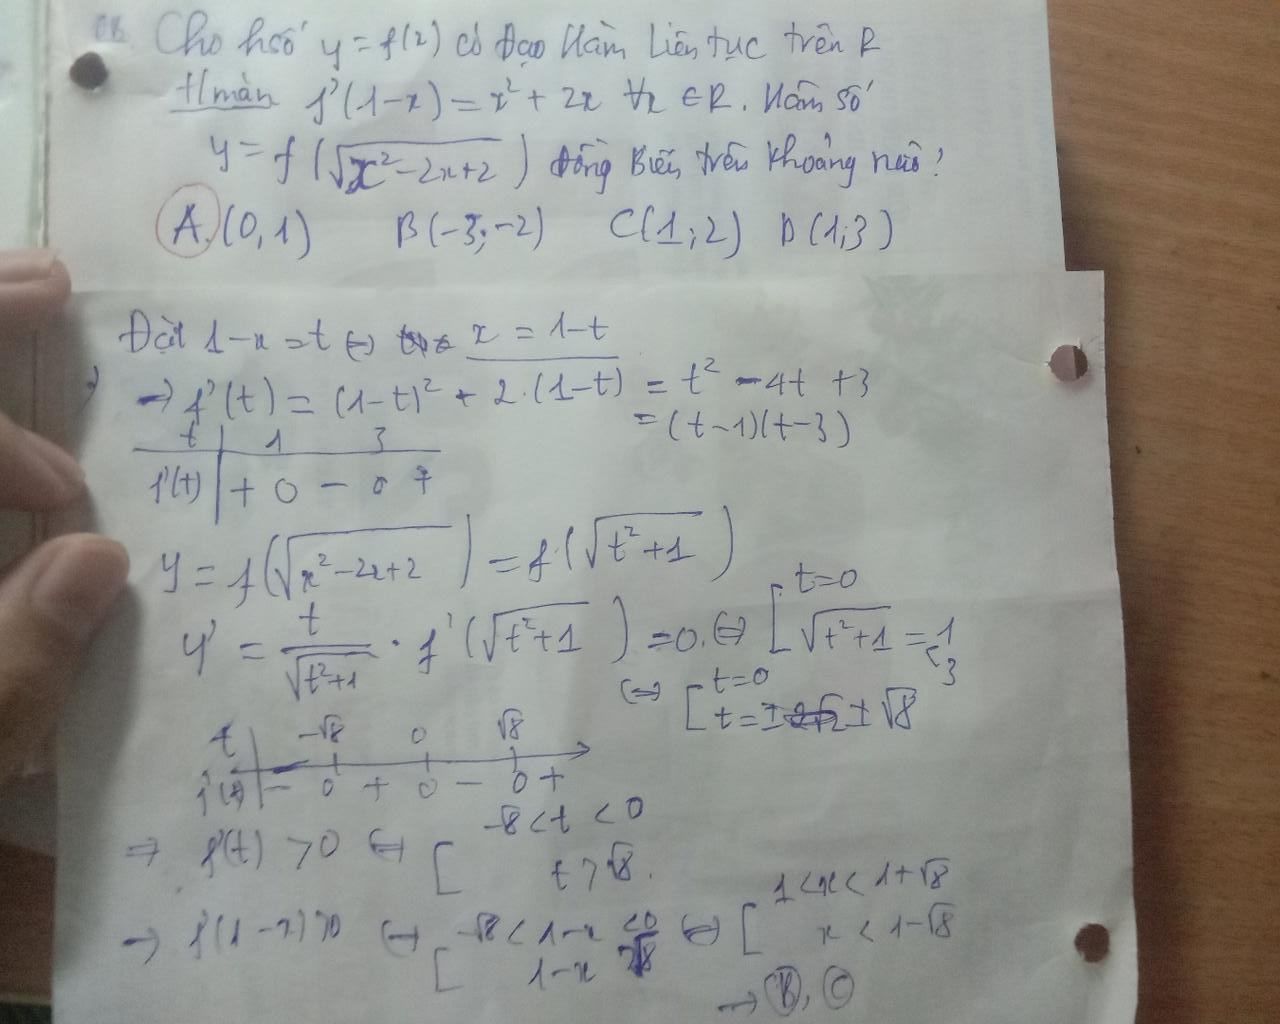 Cho hsố y = f(x) có đạo hàm liên tục trên R
t/mãn f'(1-x) = x² + 2x ∀x ∈ R. Hàm số
y = f(√(x²-2x+2)) đồng biến trên khoảng nào?
A. (0,1) B (-3;-2) C (1;2) D (1;3)
Đặt 1-x = t ⇔ x = 1-t
→ f'(t) = (1-t)² + 2.(1-t) = t² - 4t + 3
= (t-1)(t-3)
t 1 3
f'(t) + 0 - 0 +
y = f(√(x²-2x+2)) = f(√(t²+1))
y' = t/√(t²+1) · f'(√(t²+1)) = 0 ⇔ [ t=0
√(t²+1) = 1
3
⇔ [ t=0
t = ± √8
t -√8 0 √8
f'(t) - 0 + 0 - 0 +
⇒ f'(t) > 0 ⇔ [ -8 < t < 0
t > √8.
→ f'(1-x) > 0 ⇔ [ -√8 < 1-x < 0 ⇔ [ 1 < x < 1+√8
1-x > √8 x < 1-√8
→ B, C